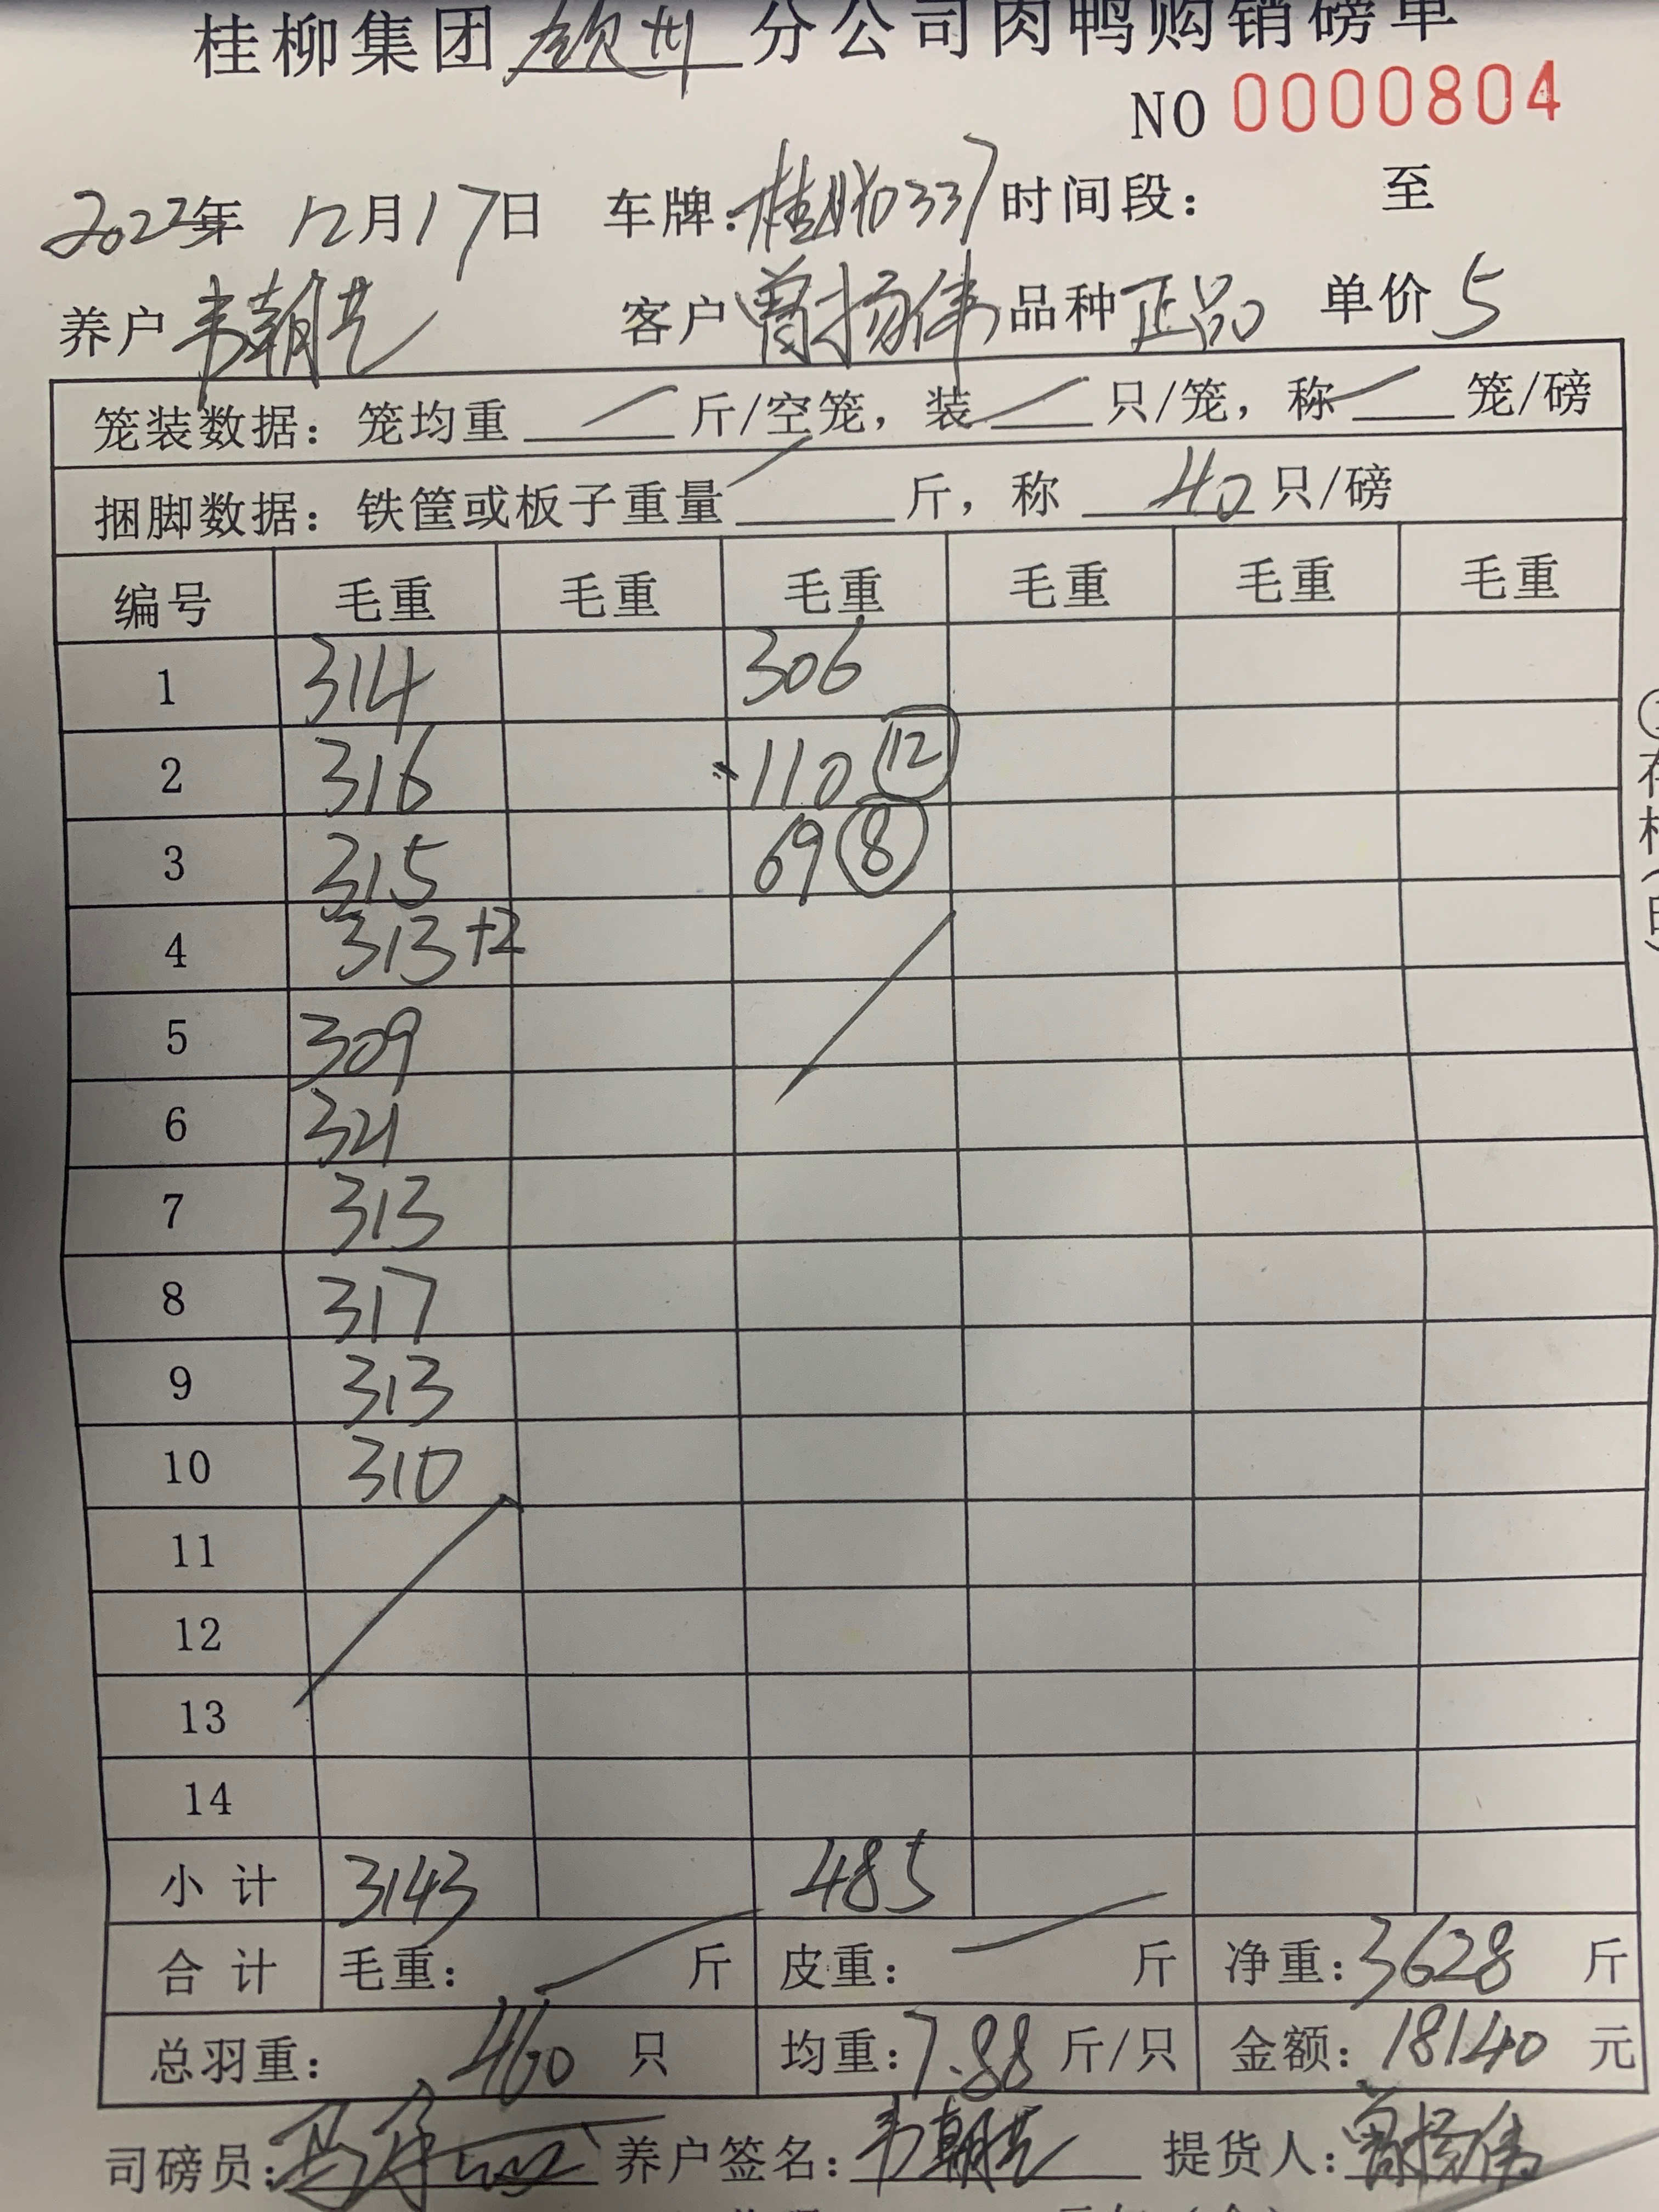 桂柳集团钦州分公司肉鸭购销磅单
NO 0000804
2022年 12月17日 车牌:桂 0337 时间段: 至
养户 韦朝 客户 曾扬伟 品种 正品 单价 5
笼装数据: 笼均重 斤/空笼, 装 只/笼, 称 笼/磅
捆脚数据: 铁筐或板子重量 斤, 称 40 只/磅
编号 毛重 毛重 毛重 毛重 毛重 毛重
1 314 306
2 316 110 ⑫
3 315 69 ⑧
4 313+2
5 309
6 321
7 313
8 317
9 313
10 310
11
12
13
14
小计 3143 485
合计 毛重: 斤 皮重: 斤 净重: 3628 斤
总羽重: 460 只 均重: 7.88 斤/只 金额: 18140 元
司磅员: 养户签名: 韦朝 提货人: 曾扬伟